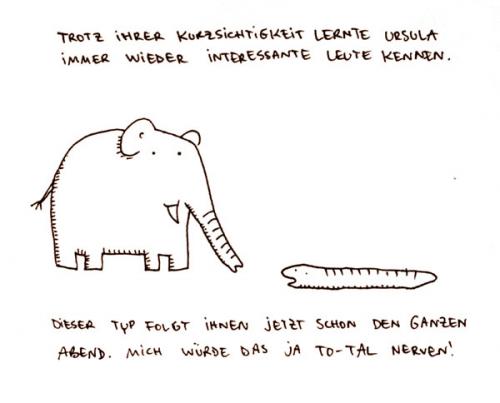 TROTZ IHRER KURZSICHTIGKEIT LERNTE URSULA
IMMER WIEDER INTERESSANTE LEUTE KENNEN.
DIESER TYP FOLGT IHNEN JETZT SCHON DEN GANZEN
ABEND. MICH WÜRDE DAS JA TO-TAL NERVEN!